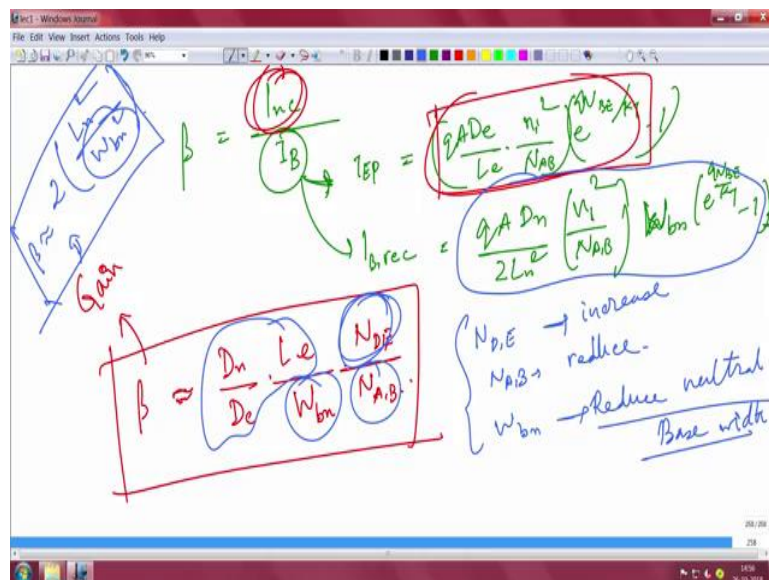 lec1 - Windows Journal
File Edit View Insert Actions Tools Help
β ≈ 2 (Ln / Wbn)²
β = Inc / IB
IEP = (qADe / Le · ni² / NAB) (e^(qVBE/KT) - 1)
IB,rec = qADn / 2Ln² (ni² / NA,B) Wbn (e^(qVBE/KT) - 1)
Gain
β ≈ Dn / De · Le / Wbn · ND,E / NA,B
ND,E → increase
NA,B → reduce
Wbn → Reduce neutral
Base width
258
14:56